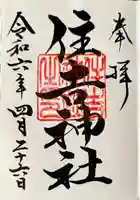 奉拝
住吉神社
令和六年四月二十六日